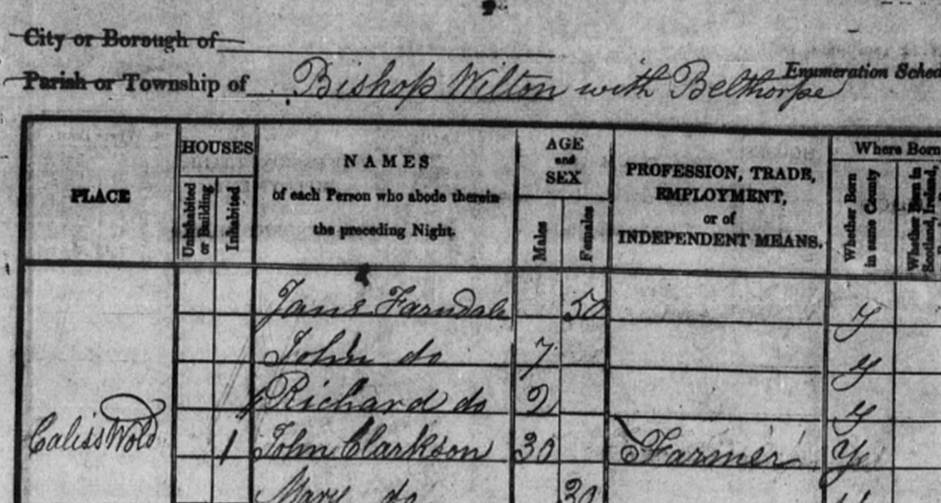 City or Borough of
Parish or Township of Bishop Wilton with Belthorpe
Enumeration Sched
PLACE
HOUSES
Uninhabited or Building
Inhabited
NAMES
of each Person who abode therein
the preceding Night.
AGE
and
SEX
Males
Females
PROFESSION, TRADE,
EMPLOYMENT,
or of
INDEPENDENT MEANS.
Where Born
Whether Born in same County
Whether Born in Scotland, Ireland,
Jane Farndale 50 y
John do 7 y
Richard do 2 y
Caliss Wold 1 John Clarkson 30 Farmer y
Mary do 30